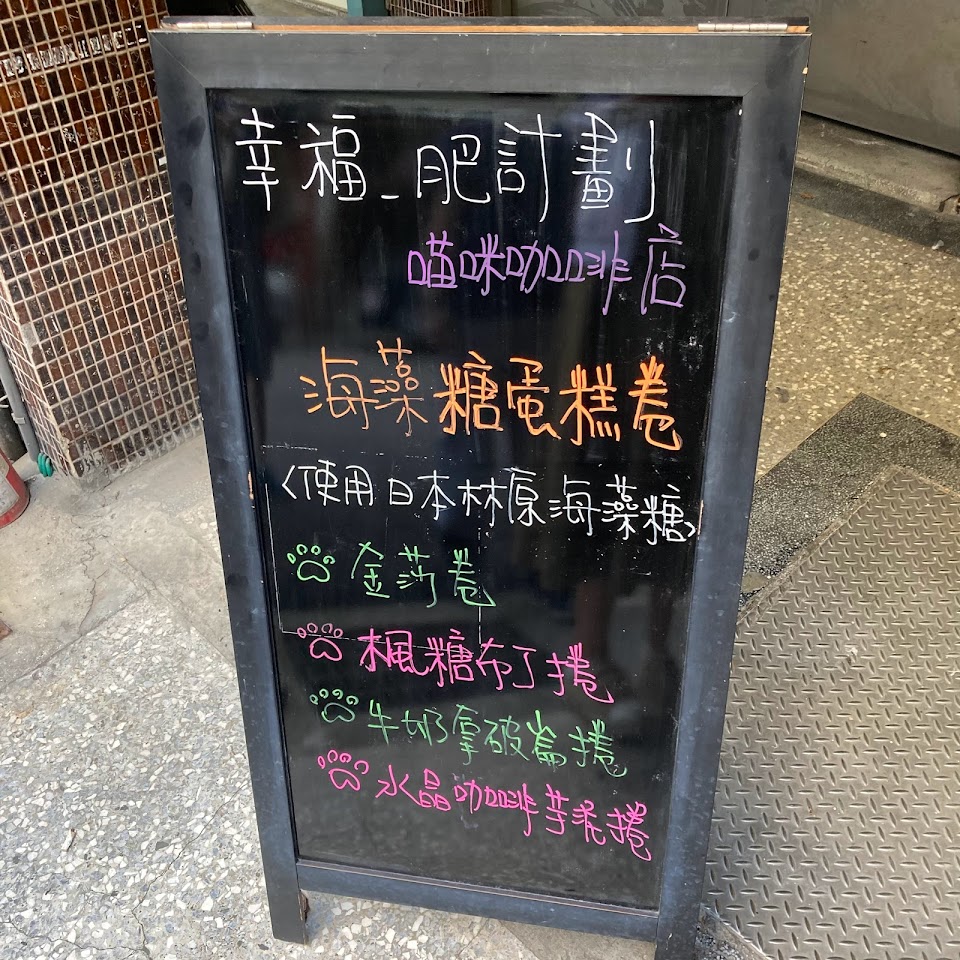 幸福_肥計劃
喵咪咖啡店
海藻糖蛋糕卷
<使用日本林原海藻糖>
金莎卷
楓糖布丁捲
牛奶拿破崙捲
水晶咖啡芋泥捲